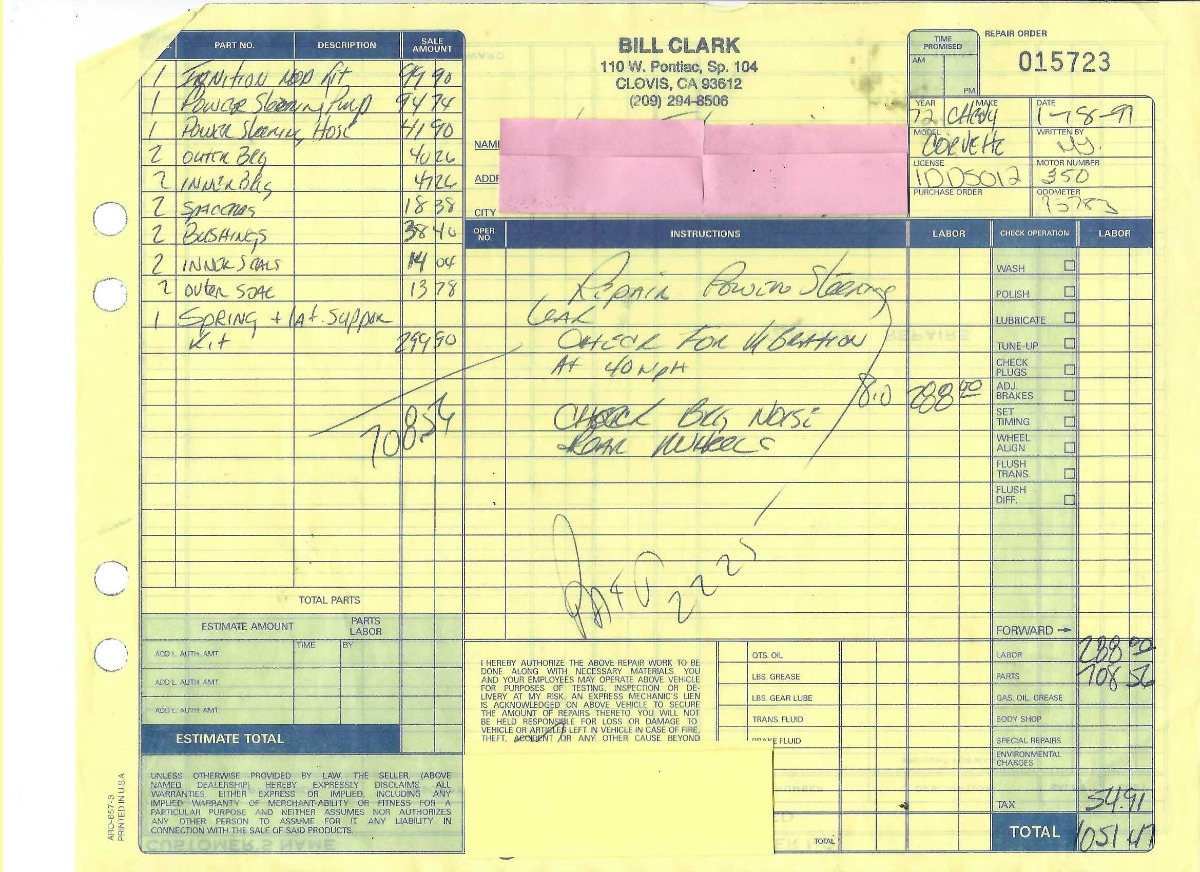 PART NO. DESCRIPTION SALE AMOUNT
1 IGNITION MOD KIT 99 90
1 POWER Steering Pump 94 74
1 POWER Steering Hose 41 90
2 OUTER BRG 40 26
2 INNER BRG 47 26
2 SPACERS 18 38
2 BUSHINGS 38 40
2 INNER SEALS 14 04
2 Outer SEAL 13 78
1 SPRING + Lat. Suppor
Kit 299 90
708.56
TOTAL PARTS
ESTIMATE AMOUNT PARTS LABOR
TIME BY
ADD'L. AUTH. AMT.
ADD'L. AUTH. AMT.
ADD'L. AUTH. AMT.
ESTIMATE TOTAL
UNLESS OTHERWISE PROVIDED BY LAW, THE SELLER, (ABOVE
NAMED DEALERSHIP) HEREBY EXPRESSLY DISCLAIMS ALL
WARRANTIES, EITHER EXPRESS OR IMPLIED, INCLUDING ANY
IMPLIED WARRANTY OF MERCHANT-ABILITY OR FITNESS FOR A
PARTICULAR PURPOSE AND NEITHER ASSUMES NOR AUTHORIZES
ANY OTHER PERSON TO ASSUME FOR IT ANY LIABILITY IN
CONNECTION WITH THE SALE OF SAID PRODUCTS.
ARO-657-3
PRINTED IN U.S.A
BILL CLARK
110 W. Pontiac, Sp. 104
CLOVIS, CA 93612
(209) 294-8506
TIME PROMISED
AM
PM
REPAIR ORDER
015723
YEAR 72 MAKE CHEVY DATE 1-78-97
MODEL CORVETTE WRITTEN BY
LICENSE 1DDS012 MOTOR NUMBER 350
PURCHASE ORDER ODOMETER
NAME
ADDR
CITY
OPER NO. INSTRUCTIONS LABOR CHECK OPERATION LABOR
Repair Power Steering
LEAK
CHECK FOR VIBRATION
At 40 mpH
8.0 288 00
CHECK BRG NOISE
REAR WHEELS
PAID 2225
WASH
POLISH
LUBRICATE
TUNE-UP
CHECK PLUGS
ADJ. BRAKES
SET TIMING
WHEEL ALIGN
FLUSH TRANS.
FLUSH DIFF.
FORWARD →
I HEREBY AUTHORIZE THE ABOVE REPAIR WORK TO BE
DONE ALONG WITH NECESSARY MATERIALS. YOU
AND YOUR EMPLOYEES MAY OPERATE ABOVE VEHICLE
FOR PURPOSES OF TESTING, INSPECTION OR DE-
LIVERY AT MY RISK. AN EXPRESS MECHANIC'S LIEN
IS ACKNOWLEDGED ON ABOVE VEHICLE TO SECURE
THE AMOUNT OF REPAIRS THERETO. YOU WILL NOT
BE HELD RESPONSIBLE FOR LOSS OR DAMAGE TO
VEHICLE OR ARTICLES LEFT IN VEHICLE IN CASE OF FIRE,
THEFT, ACCIDENT OR ANY OTHER CAUSE BEYOND
QTS. OIL
LBS. GREASE
LBS. GEAR LUBE
TRANS. FLUID
BRAKE FLUID
TOTAL
LABOR 288 00
PARTS 708 56
GAS, OIL, GREASE
BODY SHOP
SPECIAL REPAIRS
ENVIRONMENTAL CHARGES
TAX 54.91
TOTAL 1051 47